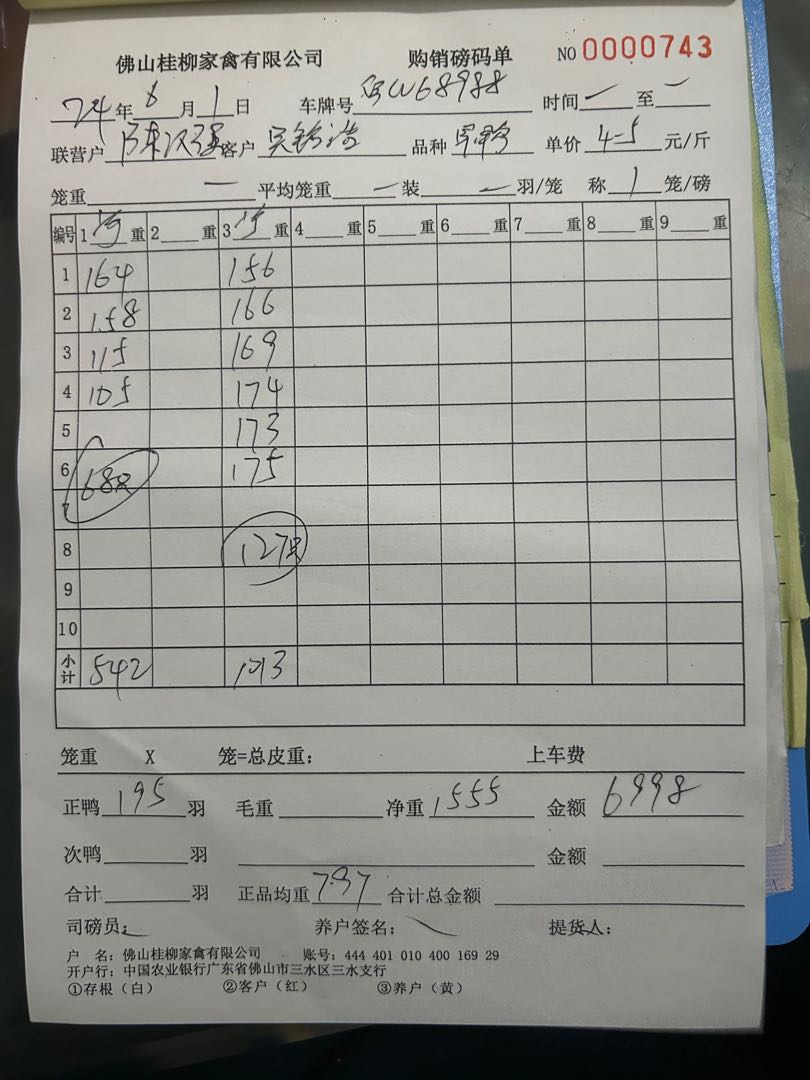 佛山桂柳家禽有限公司 购销磅码单 NO 0000743
24年6月1日 车牌号 W68988 时间 — 至 —
联营户 陈汉强 客户 品种 单价 4-5 元/斤
笼重 — 平均笼重 — 装 — 羽/笼 称 1 笼/磅
编号 1 重 2 重 3 重 4 重 5 重 6 重 7 重 8 重 9 重
1 164 156
2 158 166
3 115 169
4 105 174
5 173
6 175
68只
7
8 127只
9
10
小计 542 1013
笼重 X 笼=总皮重: 上车费
正鸭 195 羽 毛重 净重 1555 金额 6998
次鸭 羽 金额
合计 羽 正品均重 7.97 合计总金额
司磅员: 养户签名: 提货人:
户 名: 佛山桂柳家禽有限公司 账号: 444 401 010 400 169 29
开户行: 中国农业银行广东省佛山市三水区三水支行
①存根(白) ②客户(红) ③养户(黄)